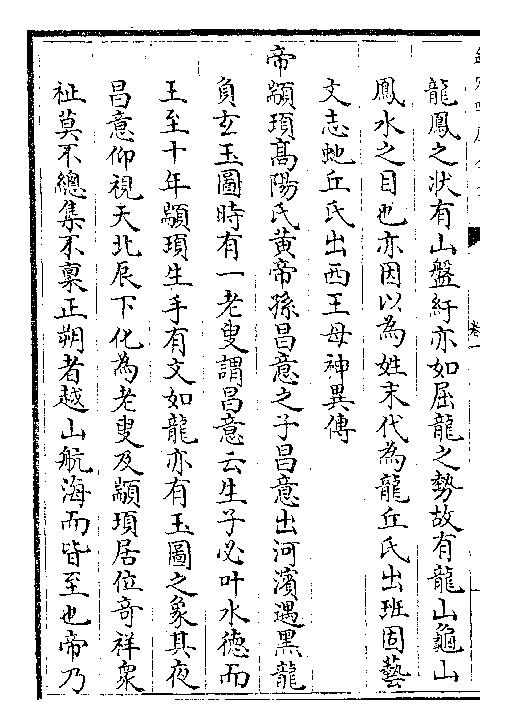 龍鳳之狀有山盤紆亦如屈龍之勢故有龍山龜山
鳳水之目也亦因以為姓末代為龍丘氏出班固藝
文志虵丘氏出西王母神異傳
帝顓頊高陽氏黄帝孫昌意之子昌意出河濱遇黑龍
負玄玉圖時有一老叟謂昌意云生子必叶水德而
王至十年顓頊生手有文如龍亦有玉圖之象其夜
昌意仰視天北辰下化為老叟及顓頊居位竒祥衆
祉莫不總集不稟正朔者越山航海而皆至也帝乃
卷一